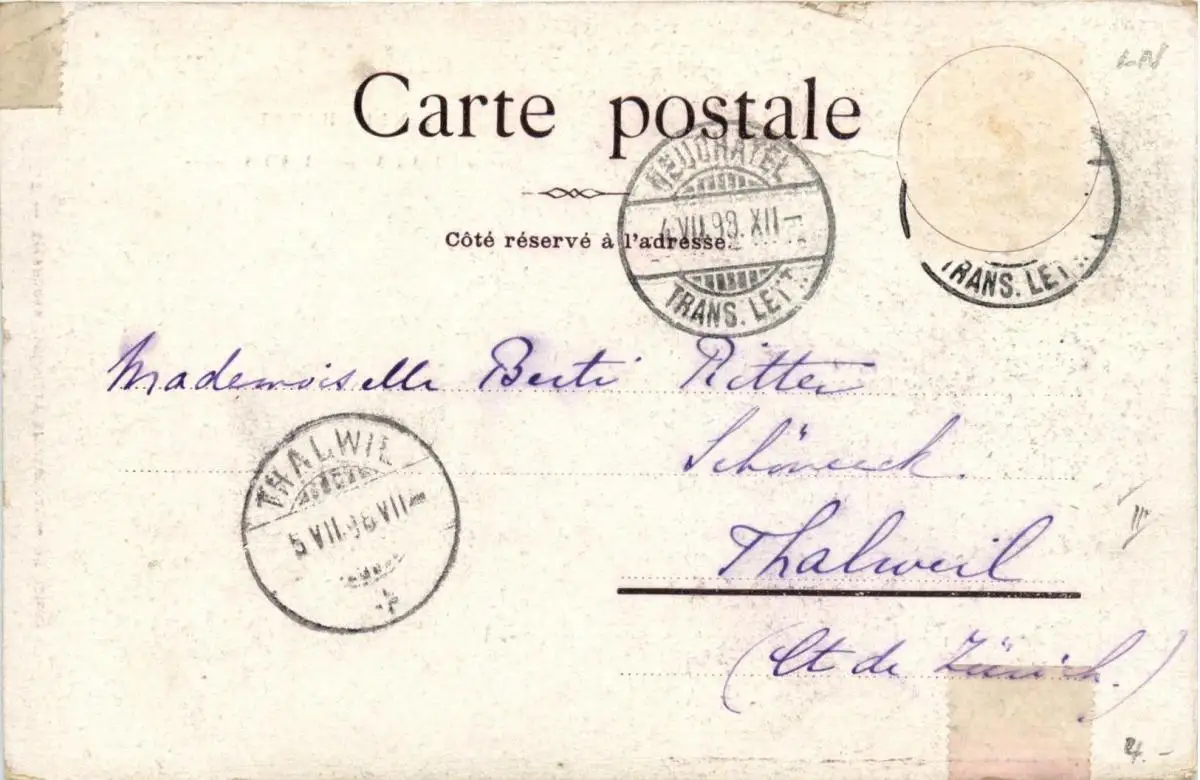 Carte postale
NEUCHATEL
4 VII 98. XII
TRANS. LETT.
Côté réservé à l'adresse.
TRANS. LETT.
Mademoiselle Berti Ritter
Schöneck.
THALWIL
5 VII. 98 VII
Thalweil
(Ct de Zürich.)
4. -